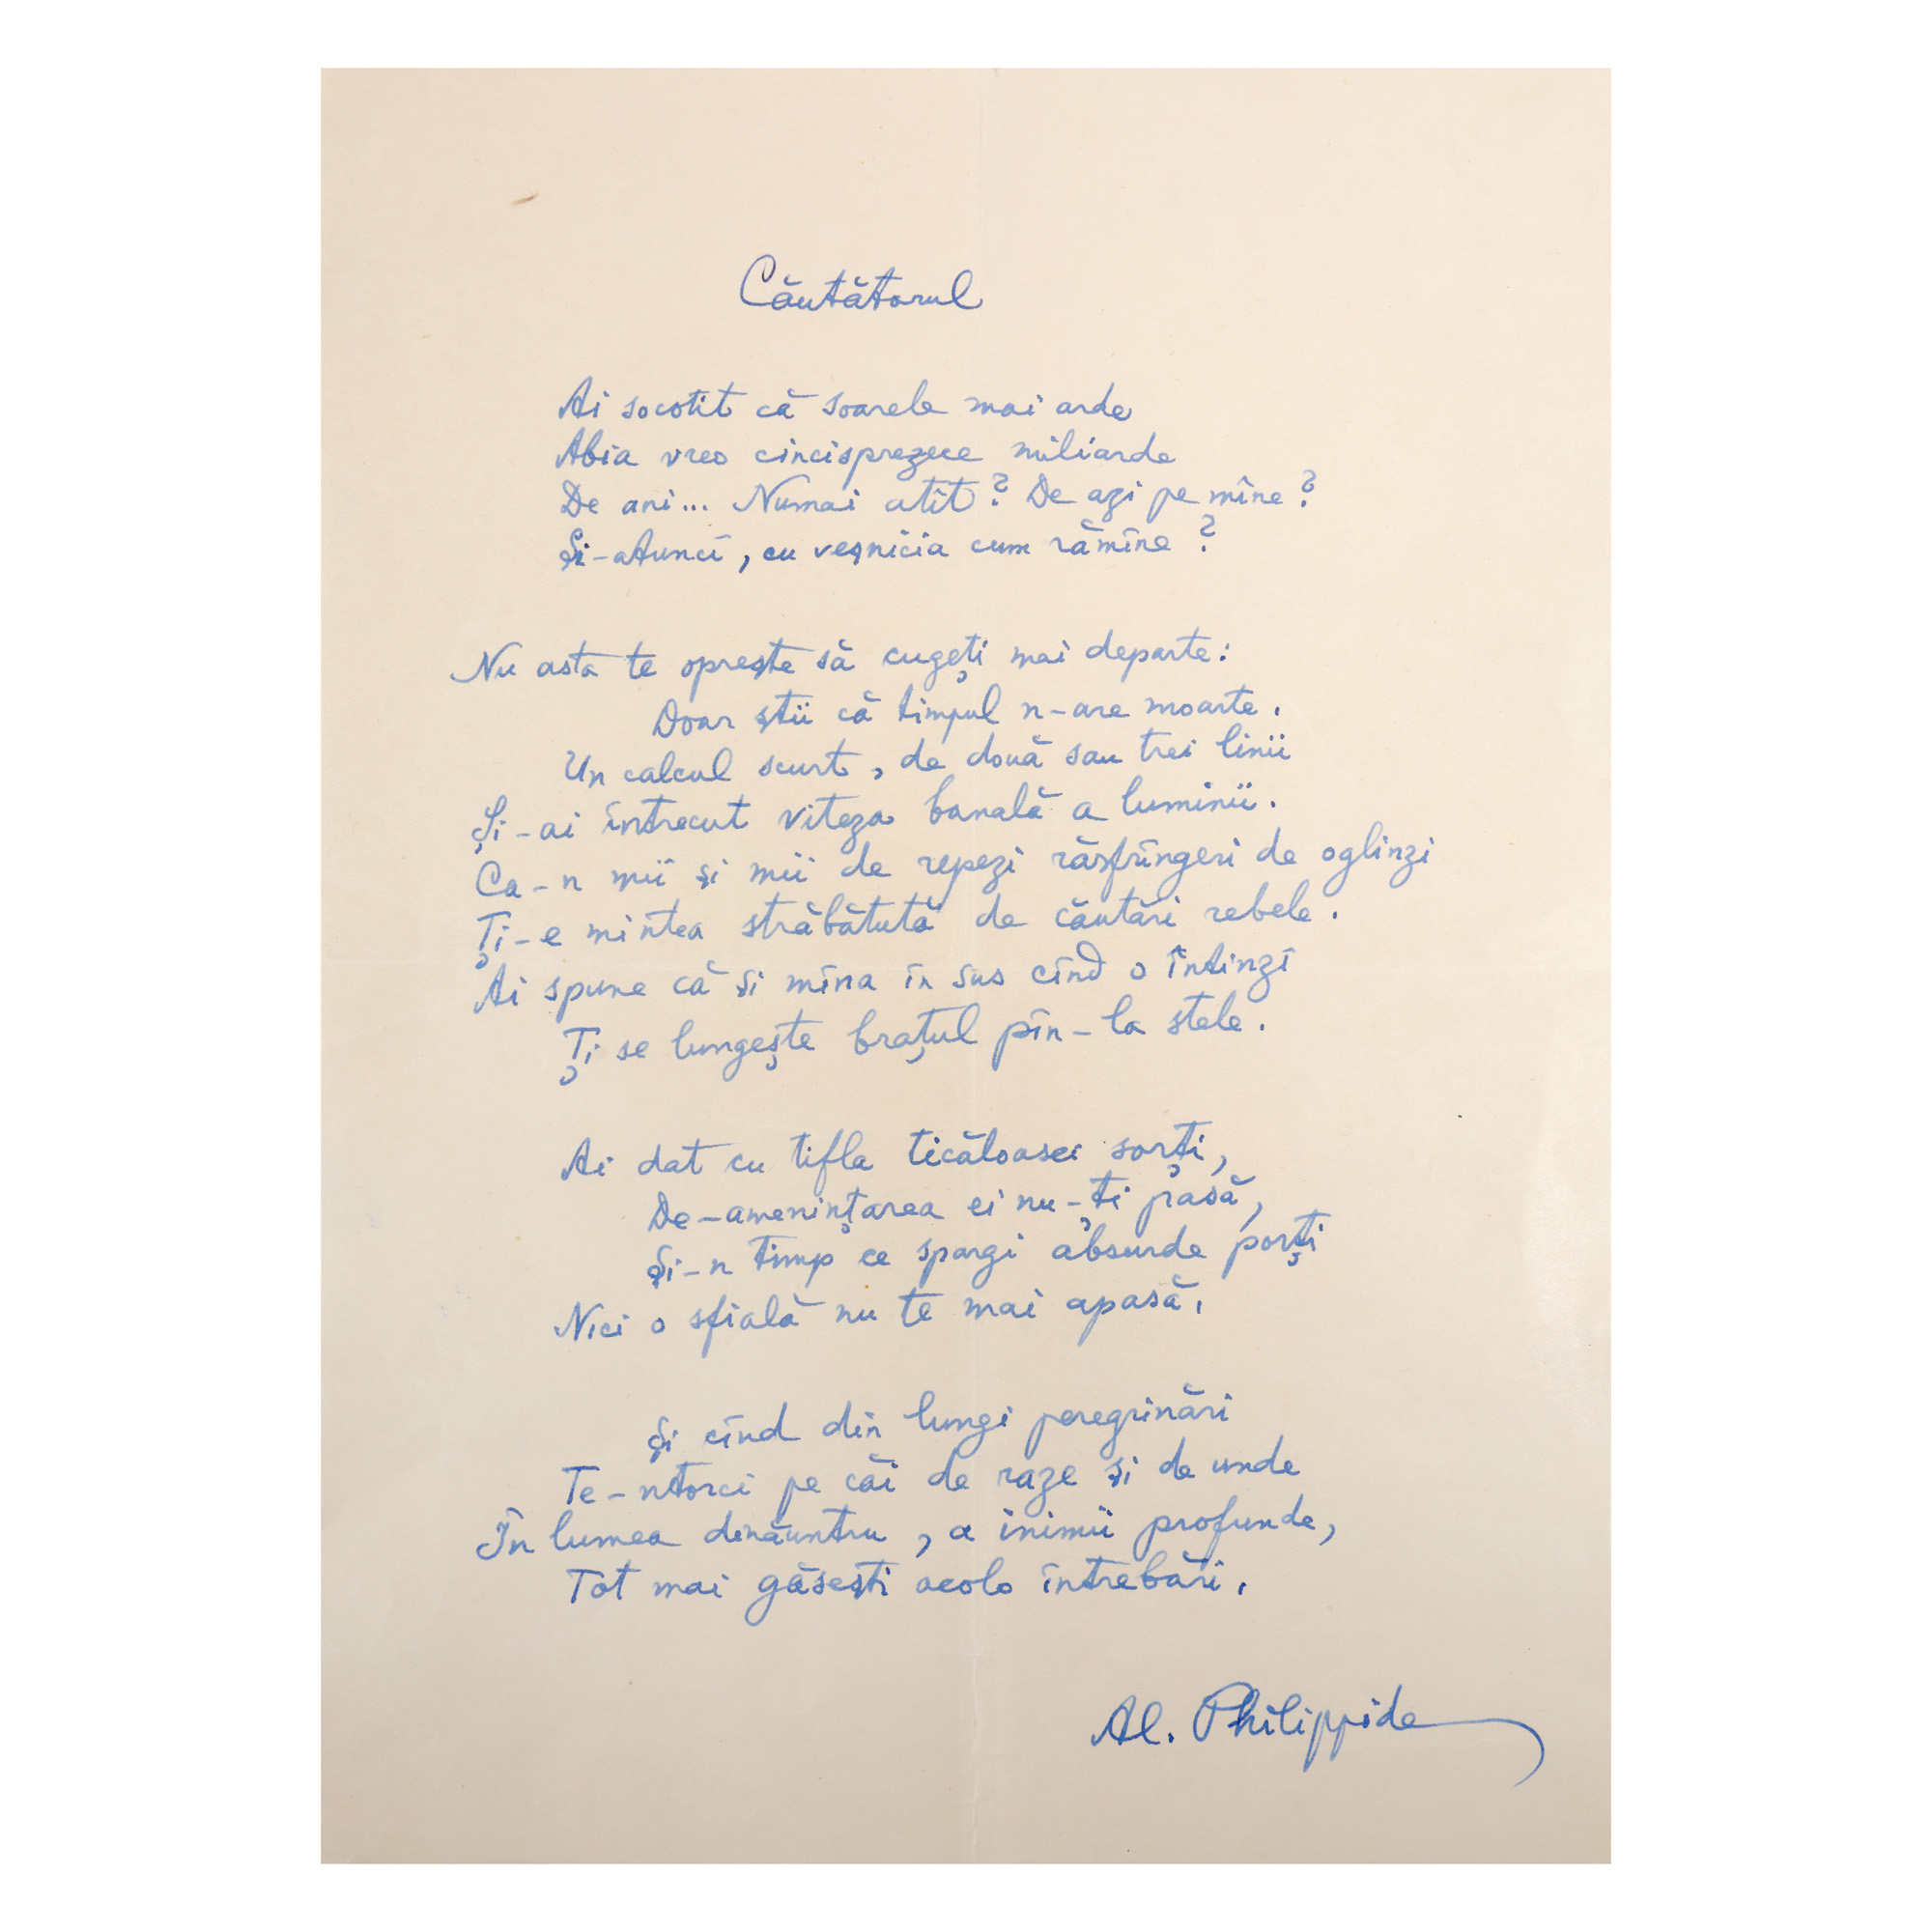 Căutătorul
Ai socotit că soarele mai arde
Abia vreo cincisprezece miliarde
De ani... Numai atît? De azi pe mîne?
Și-atunci, cu veșnicia cum rămîne?
Nu asta te oprește să cugeți mai departe:
Doar știi că timpul n-are moarte.
Un calcul scurt, de două sau trei linii
Și-ai întrecut viteza banală a luminii.
Ca-n mii și mii de repezi răsfrîngeri de oglinzi
Ți-e mintea străbătută de căutări rebele.
Ai spune că și mîna în sus cînd o întinzi
Ți se lungește brațul pîn-la stele.
Ai dat cu tifla ticăloasei sorți,
De-amenințarea ei nu-ți pasă,
Și-n timp ce spargi absurde porți
Nici o sfială nu te mai apasă.
Și cînd din lungi peregrinări
Te-ntorci pe căi de raze și de unde
În lumea dinăuntru, a inimii profunde,
Tot mai găsești acolo întrebări.
Al. Philippide